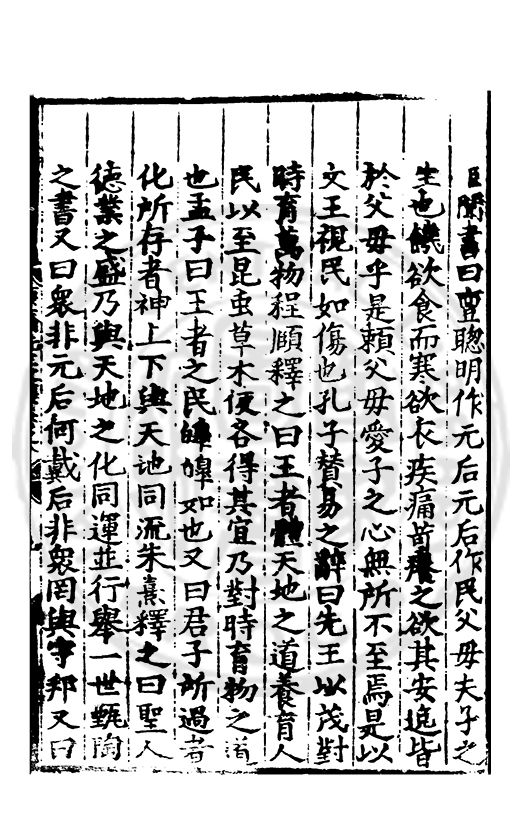 臣聞書曰亶聰明作元后元后作民父毋夫子之
生也饑欲食而寒欲衣疾痛苛癢之欲其安逸皆
於父毋乎是賴父毋愛子之心無所不至焉是以
文王視民如傷也孔子賛易之辭曰先王以茂對
時育萬物程頤釋之曰王者體天地之道養育人
民以至昆虫草木使各得其宜乃對時育物之道
也孟子曰王者之民皥皥如也又曰君子所過者
化所存者神上下與天地同流朱熹釋之曰聖人
德業之盛乃與天地之化同運並行舉一世甄陶
之書又曰衆非元后何戴后非衆罔與守邦又曰